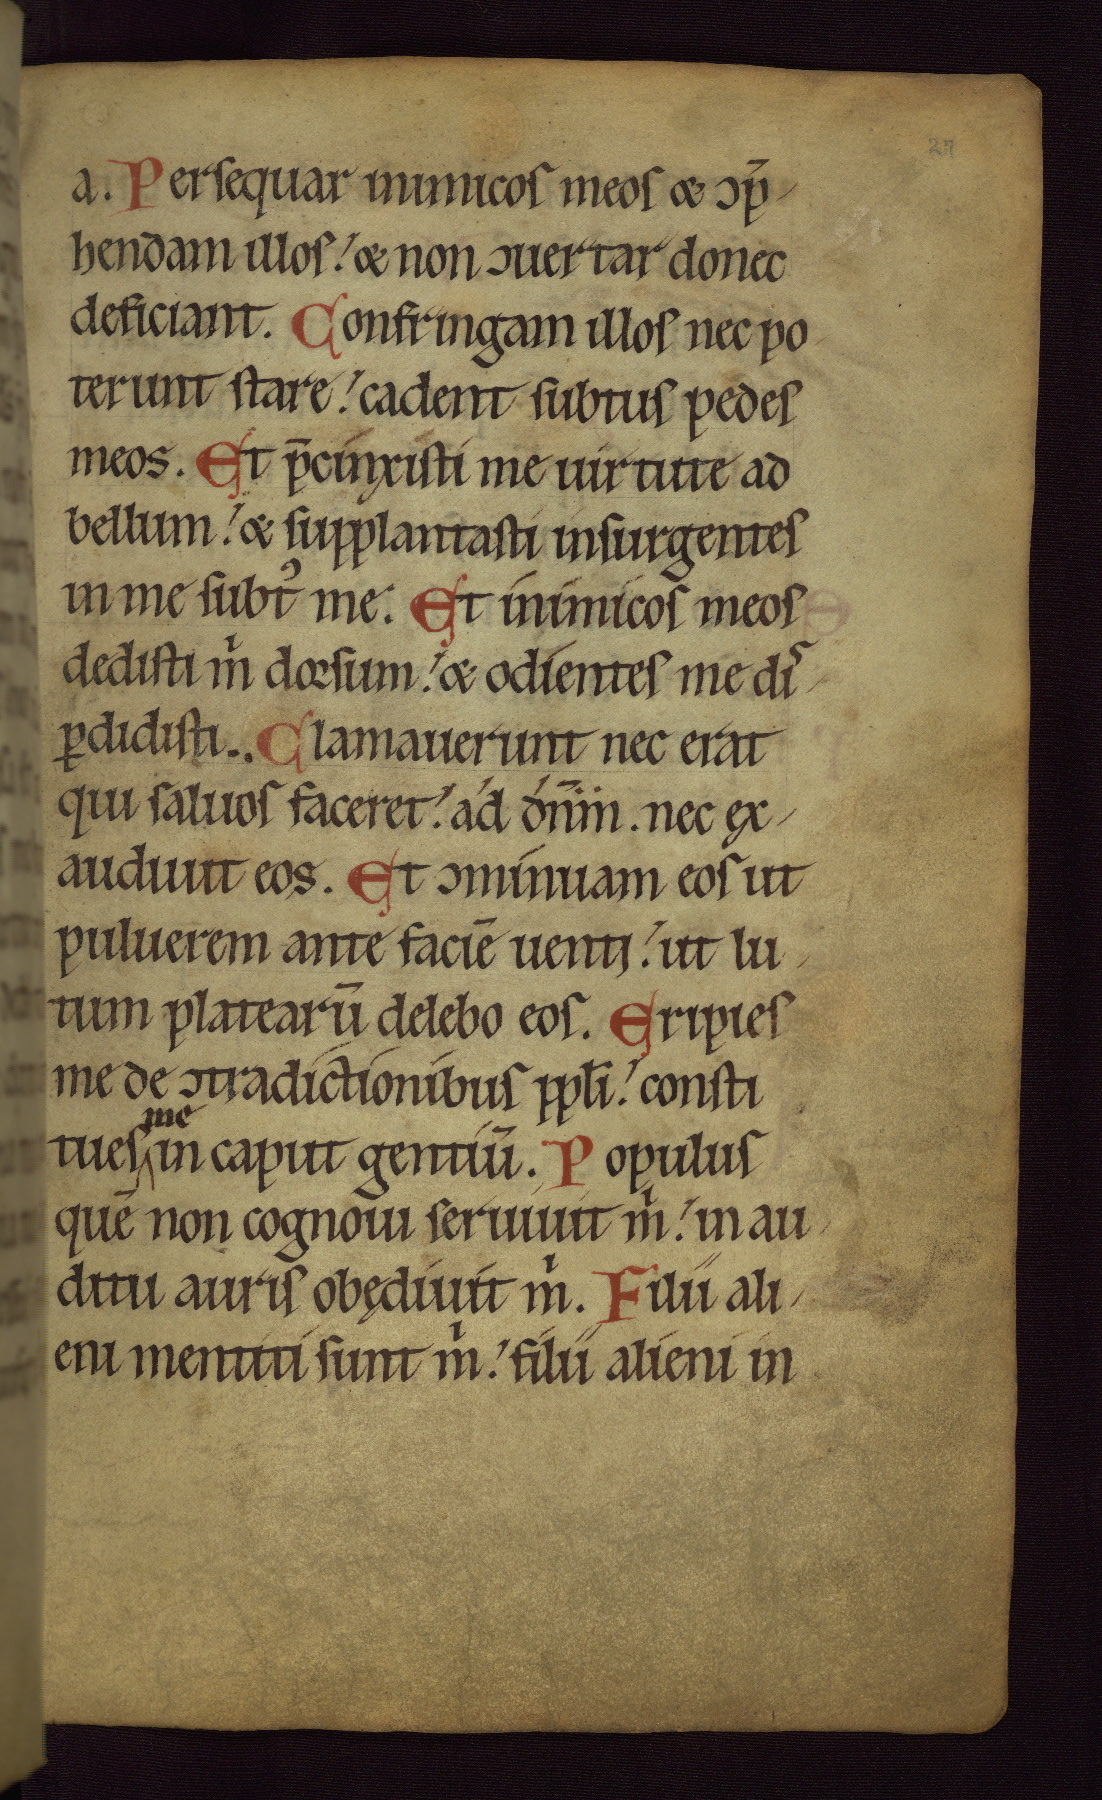 27
a. Persequar inimicos meos & ɔp̄
hendam illos: & non ɔuertar donec
deficiant. Confringam illos nec po
terunt stare: cadent subtus pedes
meos. Et p̄cinxisti me uirtute ad
bellum: & supplantasti insurgentes
in me subt᾽ me. Et inimicos meos
dedisti m̍ dorsum: & odientes me diˢ
ꝑdidisti. Clamauerunt nec erat
qui saluos faceret: ad dn̄m. nec ex
audiuit eos. Et ɔminuam eos ut
puluerem ante faciē uenti: ut lu
tum platearū delebo eos. Eripies
me de ɔtradictionibus pp̄li: consti
me
tues in caput gentiū. Populus
quē non cognoui seruiuit m̍: in au
ditu auris obędiuit m̍. Filii ali
eni mentiti sunt m̍: filii alieni in